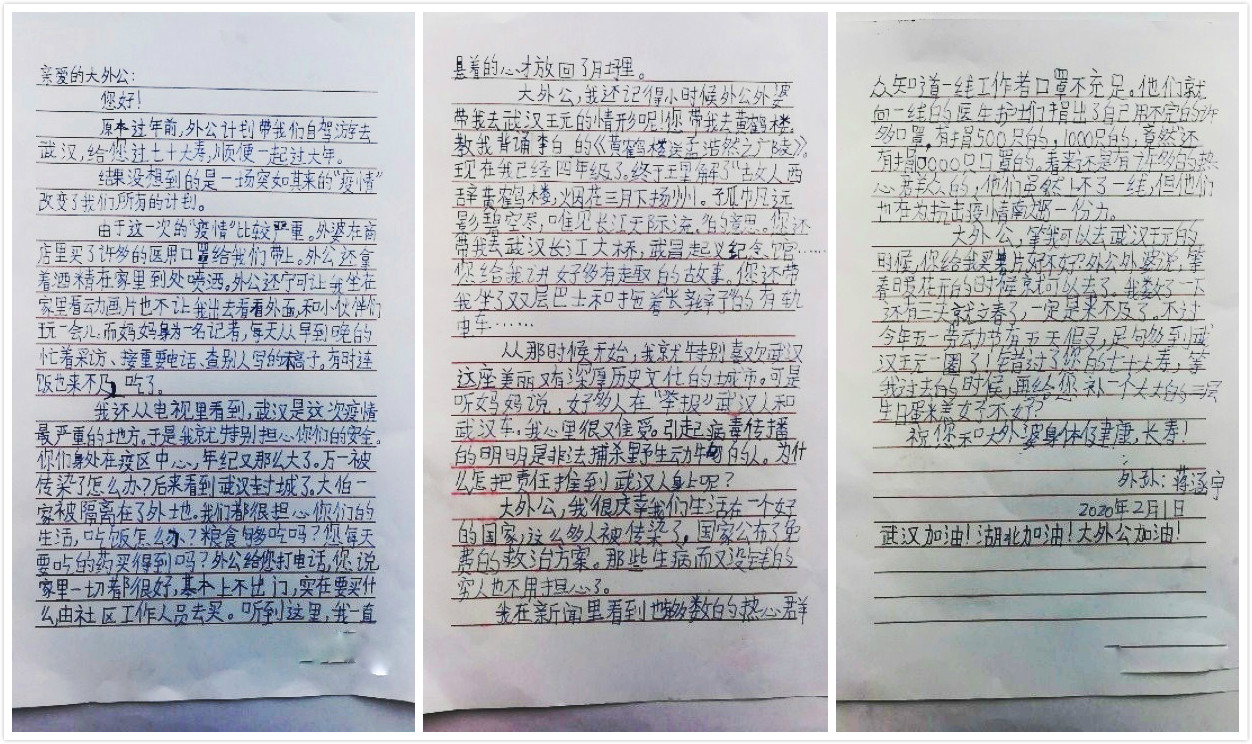 亲爱的大外公：
您好！
原本过年前，外公计划带我们自驾游去
武汉，给您过七十大寿，顺便一起过大年。
结果没想到的是一场突如其来的“疫情”
改变了我们所有的计划。
由于这一次的“疫情”比较严重。外婆在商
店里买了许多的医用口罩给我们带上。外公还拿
着酒精在家里到处喷洒。外公还宁可让我坐在
家里看动画片也不让我出去看看外面，和小伙伴们
玩一会儿。而妈妈身为一名记者，每天从早到晚的
忙着采访、接重要电话、查别人写的稿子。有时连
饭也来不及吃了。
我还从电视里看到，武汉是这次疫情
最严重的地方。于是我就特别担心你们的安全。
你们身处在疫区中心，年纪又那么大了。万一被
传染了怎么办？后来看到武汉封城了。大伯一
家被隔离在了外地。我们都很担心你们的
生活，吃饭怎么办？粮食够吃吗？您每天
要吃的药买得到吗？外公给您打电话，您说
家里一切都很好，基本上不出门，实在要买什
么由社区工作人员去买。听到这里，我一直
悬着的心才放回了肚里。
大外公，我还记得小时候外公外婆
带我去武汉玩的情形呢！您带我去黄鹤楼，
教我背诵李白的《黄鹤楼送孟浩然之广陵》。
现在我已经四年级了。终于理解了“故人西
辞黄鹤楼，烟花三月下扬州。孤帆远
影碧空尽，唯见长江天际流。”的意思。您还
带我去武汉长江大桥，武昌起义纪念馆……
您给我讲好多有趣的故事。您还带
我坐了双层巴士和拖着“长辫子”的有轨
电车……
从那时候开始，我就特别喜欢武汉
这座美丽又有深厚历史文化的城市。可是
听妈妈说，好多人在“举报”武汉人和
武汉车，我心里很难受。引起病毒传播
的明明是非法捕杀野生动物的人。为什
么把责任推到武汉人身上呢？
大外公，我很庆幸我们生活在一个好
的国家，这么多人被传染了，国家公布了免
费的救治方案。那些生病而又没钱的
穷人也不用担心了。
我在新闻里看到，很多的热心群
众知道一线工作者口罩不充足。他们就
向一线的医生护士们捐出了自己用不完的许
多口罩，有捐500只的，1000只的，竟然还
有捐10000只口罩的。看来还是有许多的热
心群众的，他们虽然上不了一线，但他们
也在为抗击疫情献出一份力。
大外公，等我可以去武汉玩的
时候，你给我买薯片好不好？外公外婆说，等
春暖花开的时候就可以去了。我数了一下
还有三天就立春了，一定是来不及了。不过
今年五一劳动节有五天假，足够到武
汉玩一圈了！错过了您的七十大寿，等
我过去的时候，再给您补一个大大的三层
生日蛋糕好不好？
祝您和大外婆身体健康，长寿！
外孙：蒋涵宇
2020年2月1日
武汉加油！湖北加油！大外公加油！